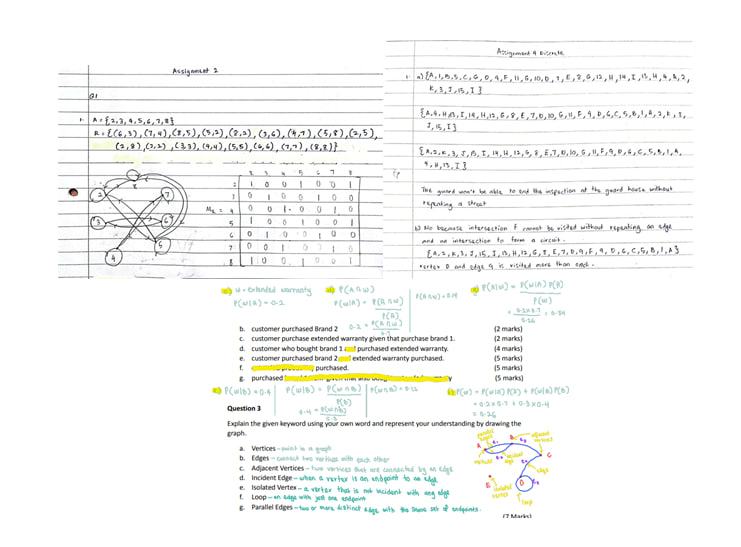 Assignment 2
Q1
1. A = {2,3,4,5,6,7,8}
R = {(6,3),(7,4),(8,5),(5,2),(8,2),(3,6),(4,7),(5,8),(2,5),
(2,8),(2,2),(3,3),(4,4),(5,5),(6,6),(7,7),(8,8)}
2 3 4 5 6 7 8
2 1 0 0 1 0 0 1
3 0 1 0 0 1 0 0
MR = 4 0 0 1 0 0 1 0
5 1 0 0 1 0 0 1
6 0 1 0 0 1 0 0
7 0 0 1 0 0 1 0
8 1 0 0 1 0 0 1
2
8
7
3
6
5
4
Assignment 4 Discrete
1. a) {A,1,B,5,C,6,D,9,F,11,G,10,D,7,E,8,G,12,H,14,I,13,H,4,A,2,
K,3,J,15,I}
{A,4,H,13,I,14,H,12,G,8,E,7,D,10,G,11,F,9,D,6,C,5,B,1,A,2,K,3,
J,15,I}
{A,2,K,3,J,15,I,14,H,12,G,8,E,7,D,10,G,11,F,9,D,6,C,5,B,1,A,
4,H,13,I}
The guard won't be able to end the inspection at the guard house without
repeating a street
b) No because intersection F cannot be visited without repeating an edge
and an intersection to form a circuit.
{A,2,K,3,J,15,I,13,H,12,G,8,E,7,D,9,F,9,D,6,C,5,B,1,A}
vertex D and edge 9 is visited more than once.
W = extended warranty
P(W|A) = 0.2
P(A∩W)
P(W|A) = P(A∩W) / P(A)
0.2 = P(A∩W)
P(A∩W) = 0.14
P(A|W) = P(W|A) P(A) / P(W)
= 0.2 x 0.7 / 0.26 = 0.54
b. customer purchased Brand 2 (2 marks)
c. customer purchase extended warranty given that purchase brand 1. (2 marks)
d. customer who bought brand 1 purchased extended warranty. (4 marks)
e. customer purchased brand 2 extended warranty purchased. (5 marks)
f. purchased. (5 marks)
g. purchased (5 marks)
P(W|B) = 0.4
P(W|B) = P(W∩B) / P(B)
0.4 = P(W∩B) / 0.3
P(W∩B) = 0.12
P(W) = P(W|A) P(A) + P(W|B) P(B)
= 0.2 x 0.7 + 0.3 x 0.4
= 0.26
Question 3
Explain the given keyword using your own word and represent your understanding by drawing the
graph.
a. Vertices - point in a graph
b. Edges - connect two vertices with each other
c. Adjacent Vertices - two vertices that are connected by an edge
d. Incident Edge - when a vertex is an endpoint to an edge
e. Isolated Vertex - a vertex that is not incident with any edge
f. Loop - an edge with just one endpoint
g. Parallel Edges - two or more distinct edge with the same set of endpoints.
parallel edges
adjacent vertices
A
B
C
D
E
vertices
incident edge
edge
isolated vertex
loop
(7 Marks)